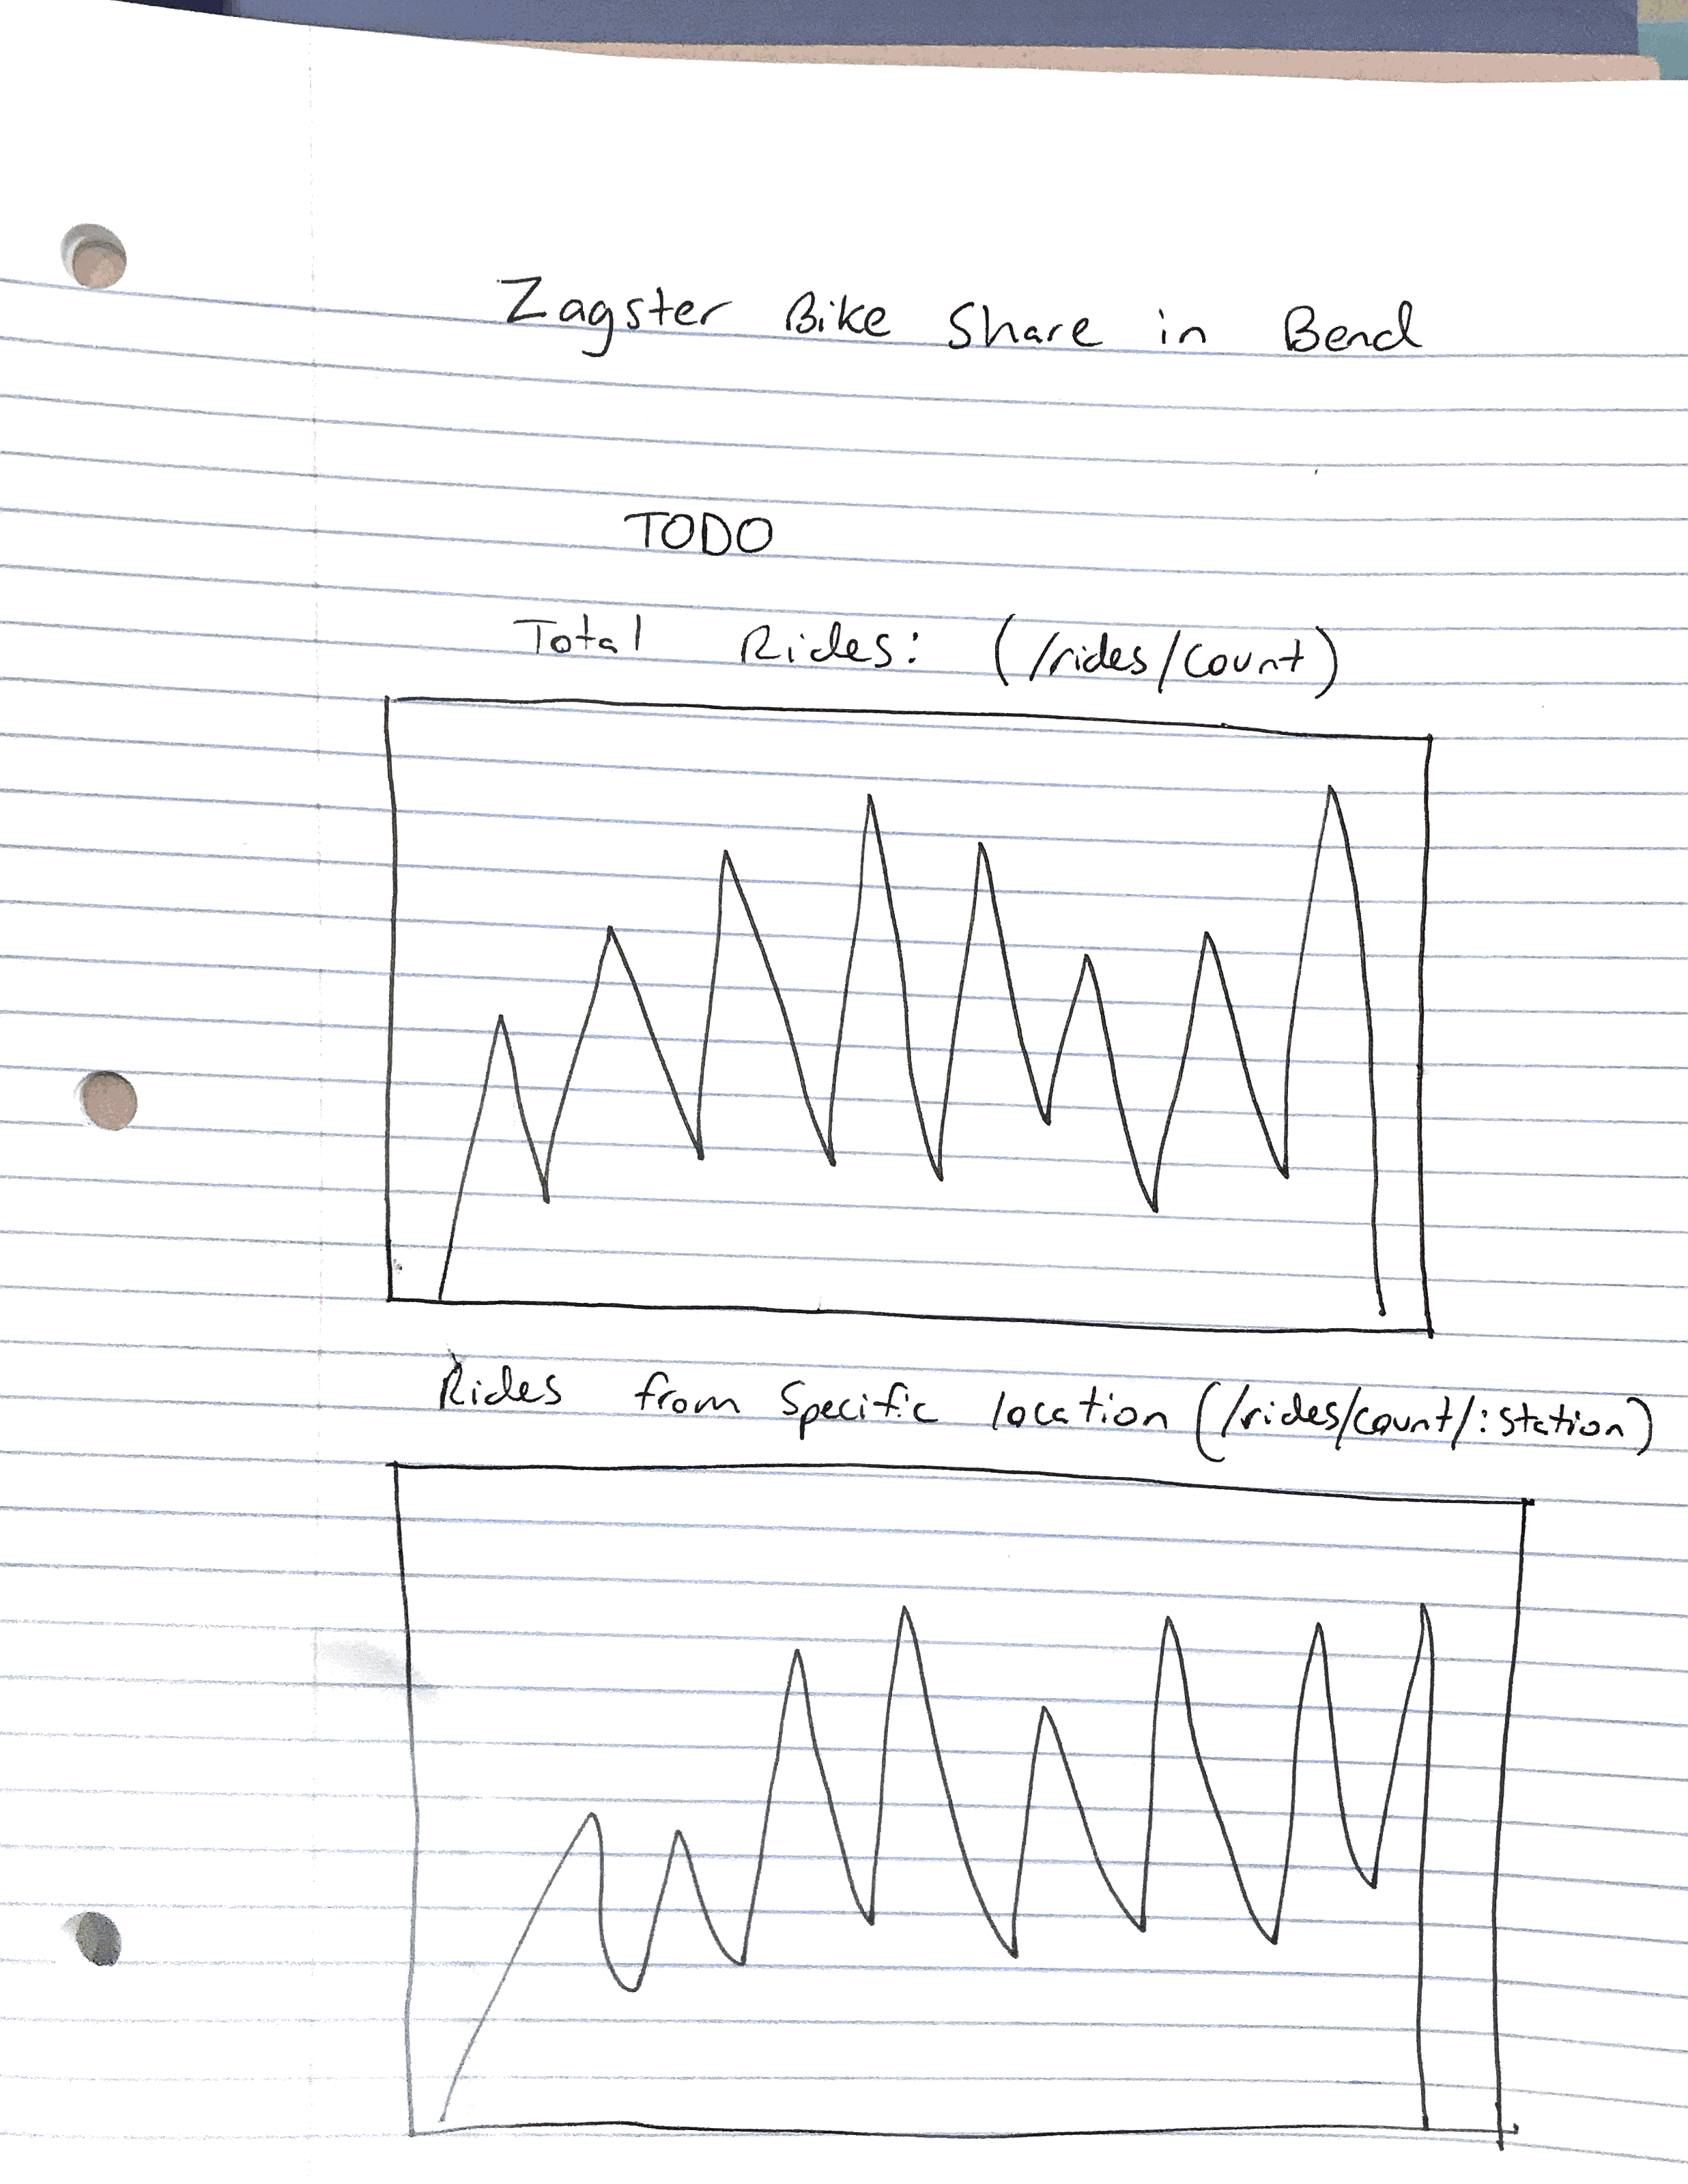 Zagster Bike Share in Bend
TODO
Total Rides: (/rides/count)
Rides from Specific location (/rides/count/:station)